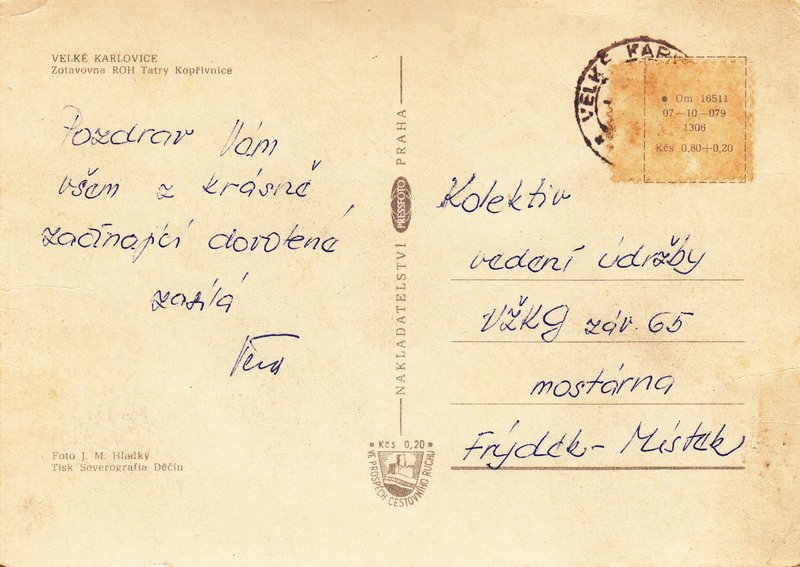 VELKÉ KARLOVICE
Zotavovna ROH Tatry Kopřivnice
Pozdrav Vám
všem z krásně
začínající dovolené
zasílá
Věra
Foto J. M. Hladký
Tisk Severografia Děčín
NAKLADATELSTVÍ PRESSFOTO PRAHA
Kčs 0,20
VE PROSPĚCH CESTOVNÍHO RUCHU
VELKÉ KARL
Om 16511
07—10—079
1306
Kčs 0,80+0,20
Kolektiv
vedení údržby
VŽKG záv. 65
mostárna
Frýdek - Místek